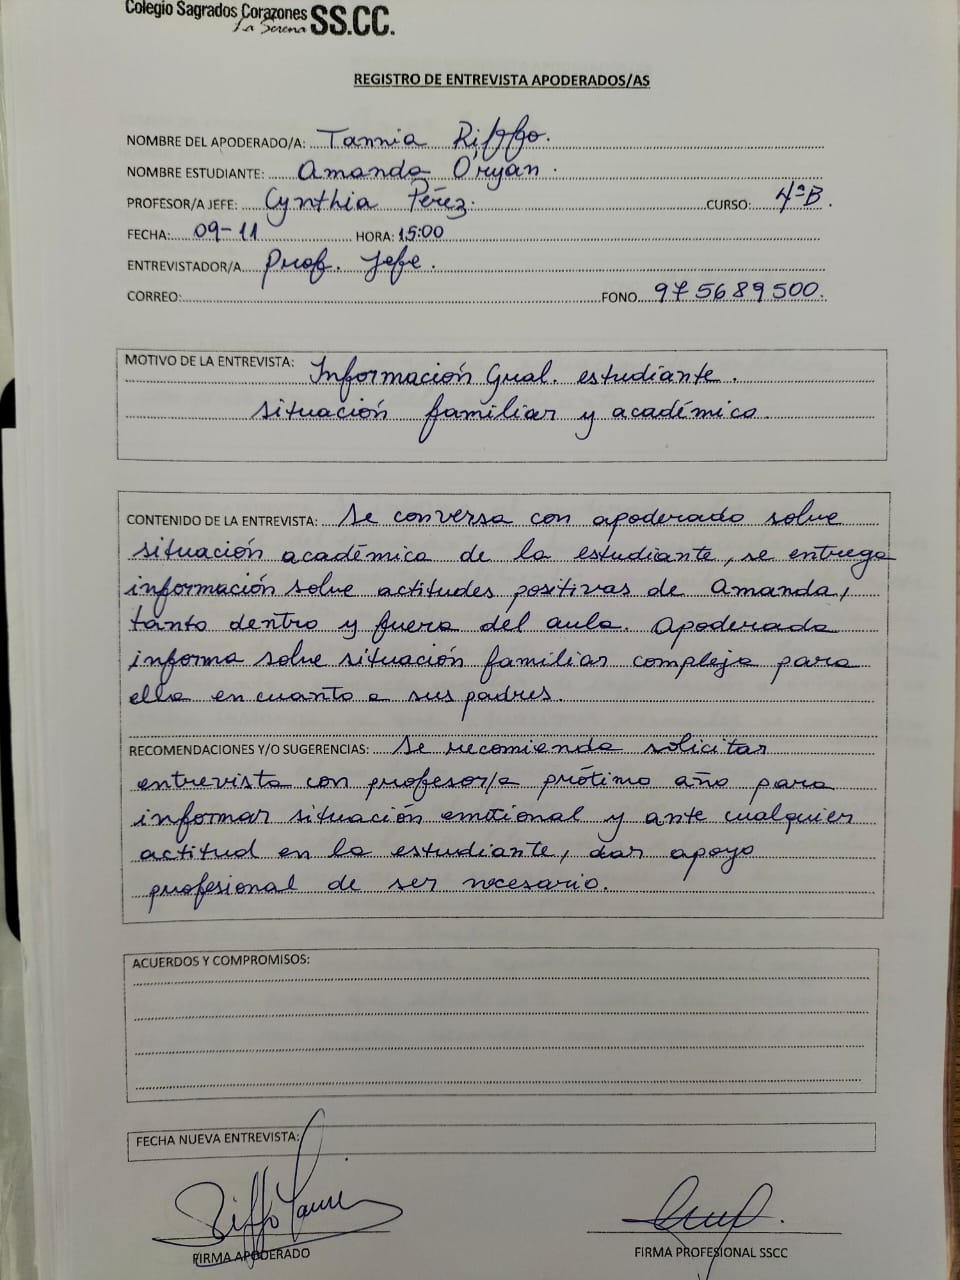 Colegio Sagrados Corazones
La Serena SS.CC.
REGISTRO DE ENTREVISTA APODERADOS/AS
NOMBRE DEL APODERADO/A: Tannia Riffo.
NOMBRE ESTUDIANTE: Amanda O'ryan.
PROFESOR/A JEFE: Cynthia Pérez. CURSO: 4°B.
FECHA: 09-11 HORA: 15:00
ENTREVISTADOR/A Prof. Jefe.
CORREO: FONO 975689500.
MOTIVO DE LA ENTREVISTA: Información Gral. estudiante.
situación familiar y académica.
CONTENIDO DE LA ENTREVISTA: Se conversa con apoderado sobre
situación académica de la estudiante, se entrega
información sobre actitudes positivas de Amanda,
tanto dentro y fuera del aula. Apoderada
informa sobre situación familiar compleja para
ella en cuanto a sus padres.
RECOMENDACIONES Y/O SUGERENCIAS: Se recomienda solicitar
entrevista con profesor/a prótimo año para
informar situación emocional y ante cualquier
actitud en la estudiante, dar apoyo
profesional de ser necesario.
ACUERDOS Y COMPROMISOS:
FECHA NUEVA ENTREVISTA:
Riffo
FIRMA APODERADO FIRMA PROFESIONAL SSCC